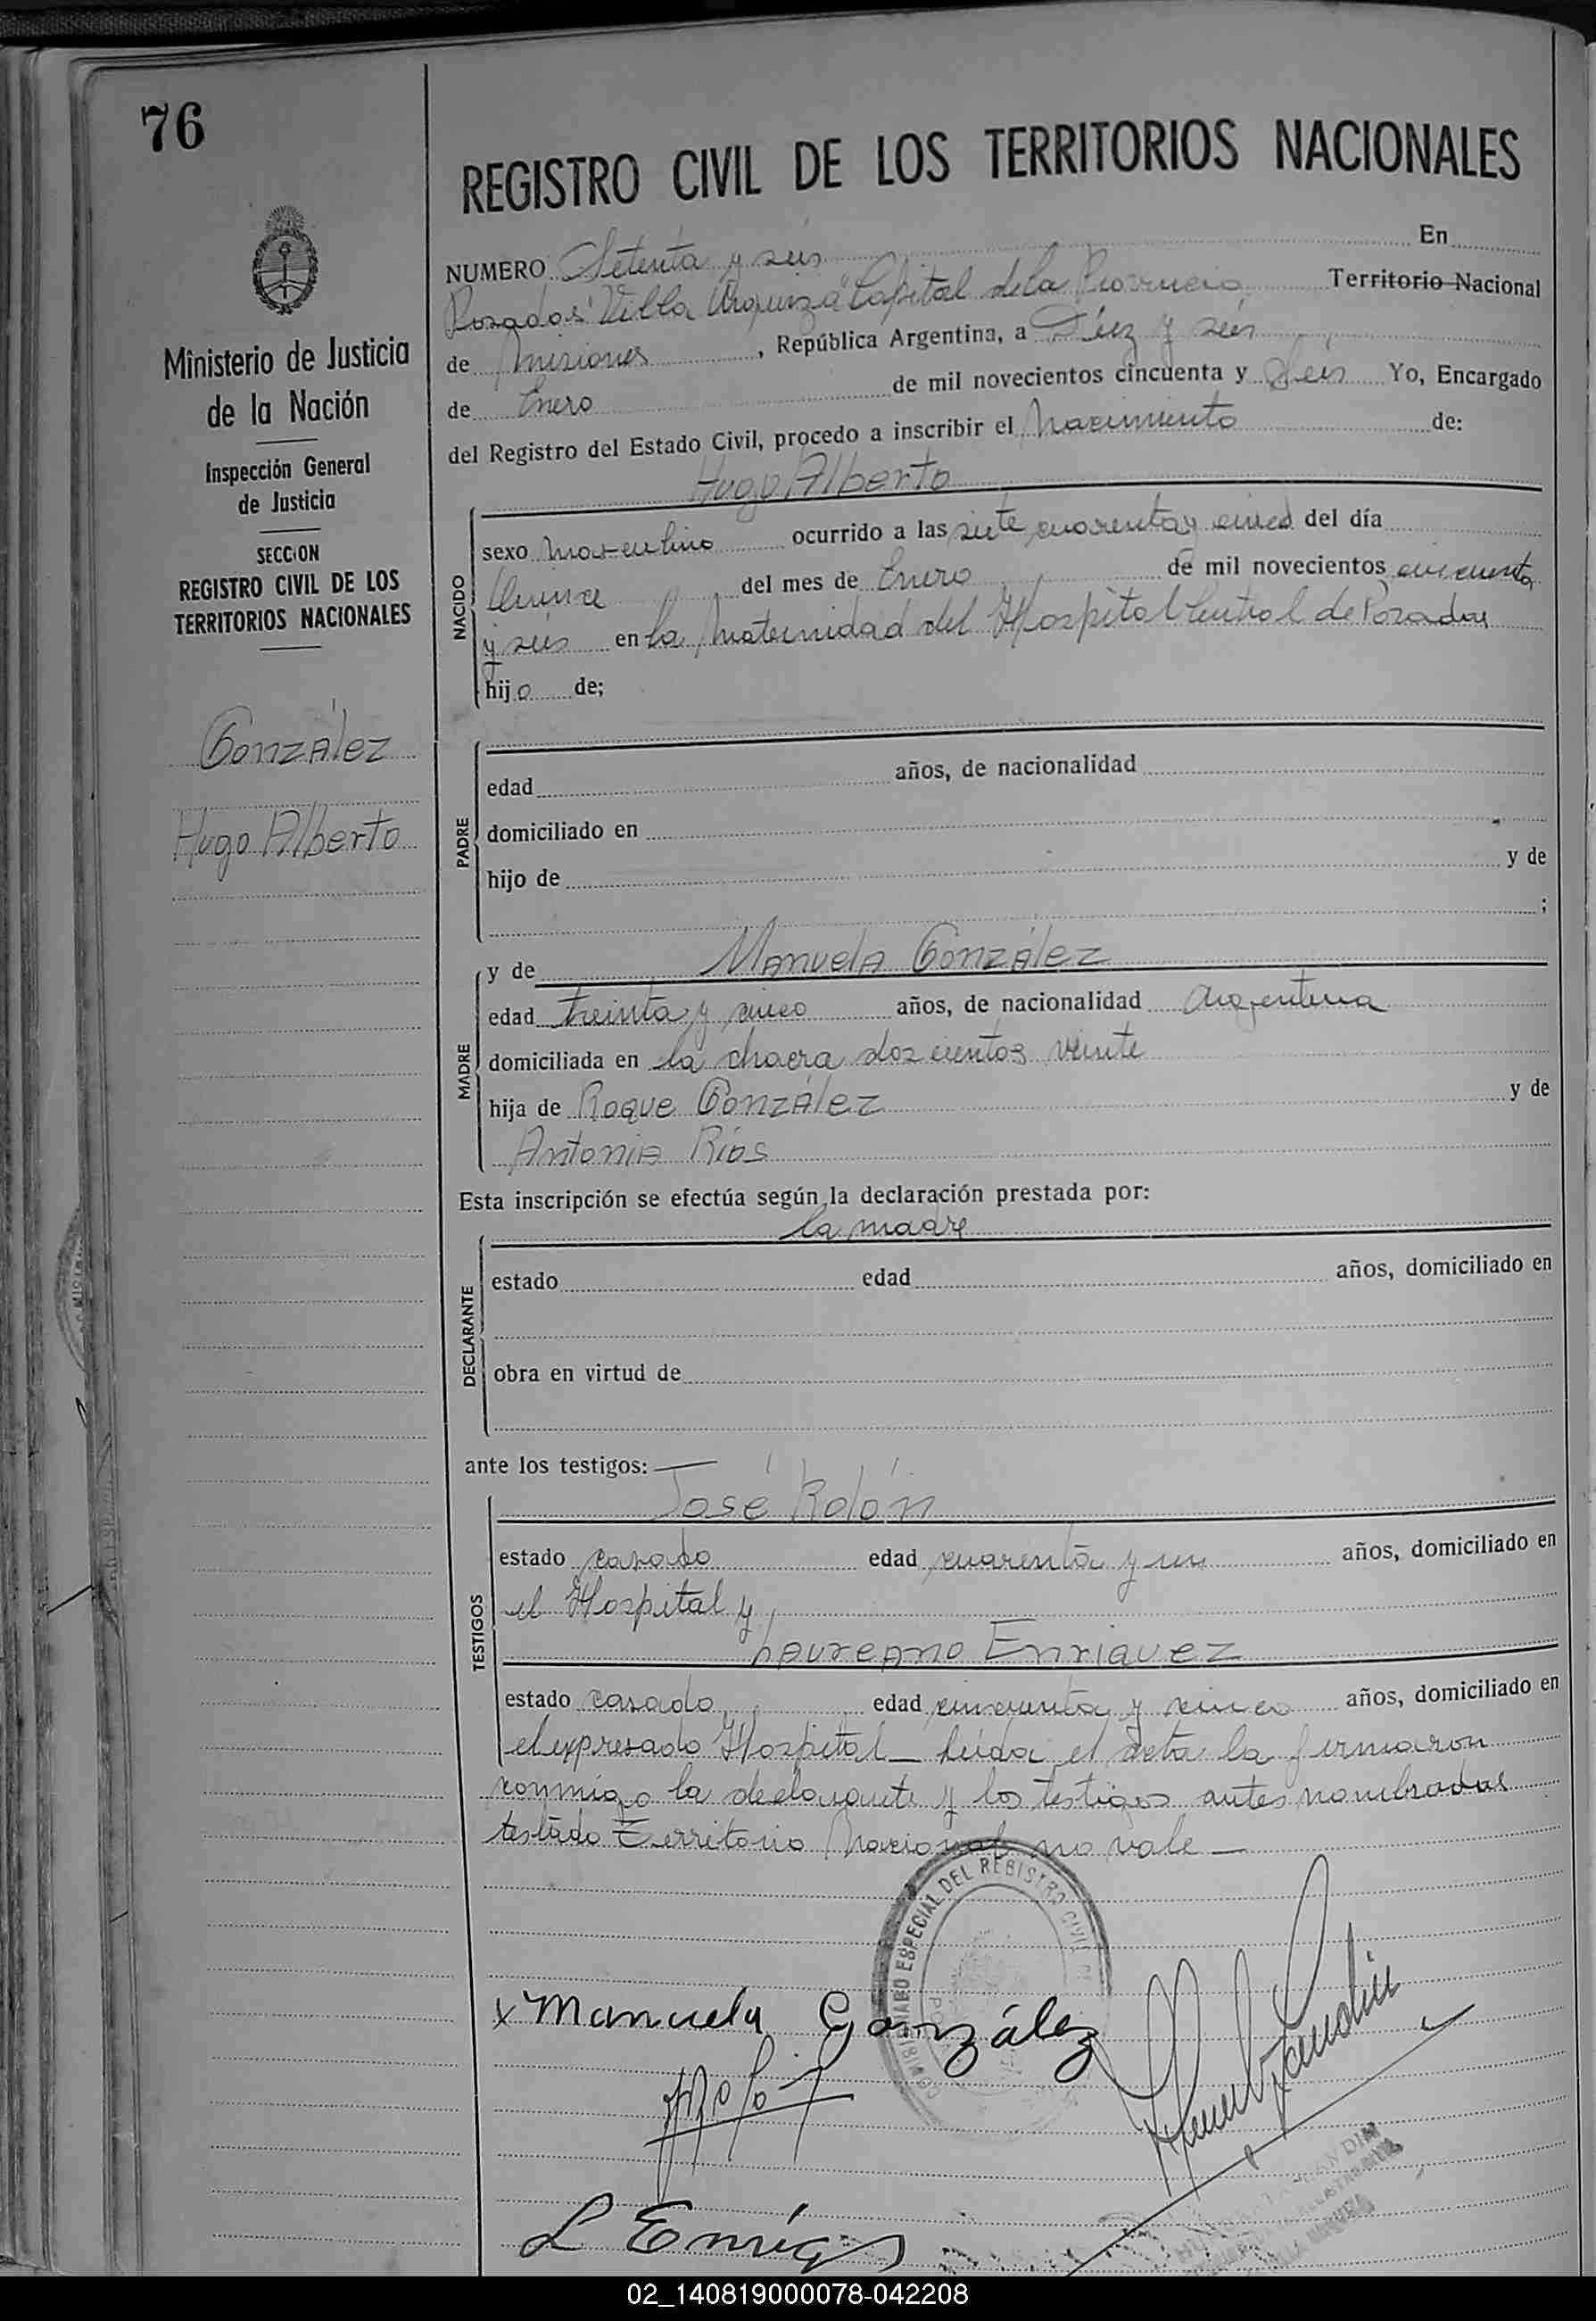 76
Ministerio de Justicia
de la Nación
Inspección General
de Justicia
SECCION
REGISTRO CIVIL DE LOS
TERRITORIOS NACIONALES
González
Hugo Alberto
REGISTRO CIVIL DE LOS TERRITORIOS NACIONALES
NUMERO Setenta y seis En
Posadas "Villa Urquiza" Capital de la Provincia Territorio Nacional
de Misiones, República Argentina, a Diez y seis
de Enero de mil novecientos cincuenta y Seis Yo, Encargado
del Registro del Estado Civil, procedo a inscribir el Nacimiento de:
Hugo Alberto
NACIDO
sexo masculino ocurrido a las siete cuarenta y cinco del día
Quince del mes de Enero de mil novecientos cincuenta
y seis en la Maternidad del Hospital Central de Posadas
hijo de;
PADRE
edad años, de nacionalidad
domiciliado en
hijo de y de
;
MADRE
y de Manuela González
edad treinta y cinco años, de nacionalidad Argentina
domiciliada en la chacra doscientos veinte
hija de Roque González y de
Antonia Ríos
Esta inscripción se efectúa según la declaración prestada por:
la madre
DECLARANTE
estado edad años, domiciliado en
obra en virtud de
ante los testigos:
TESTIGOS
José Rolón
estado casado edad cuarenta y un años, domiciliado en
el Hospital y
Laureano Enriquez
estado casado edad cincuenta y cinco años, domiciliado en
el expresado Hospital _ Leída el acta la firmaron
conmigo la declarante y los testigos antes nombrados
testado Territorio Nacional no vale _
COMISARIADO ESPECIAL DEL REGISTRO CIVIL
x Manuela González
L Enriq
02_140819000078-042208